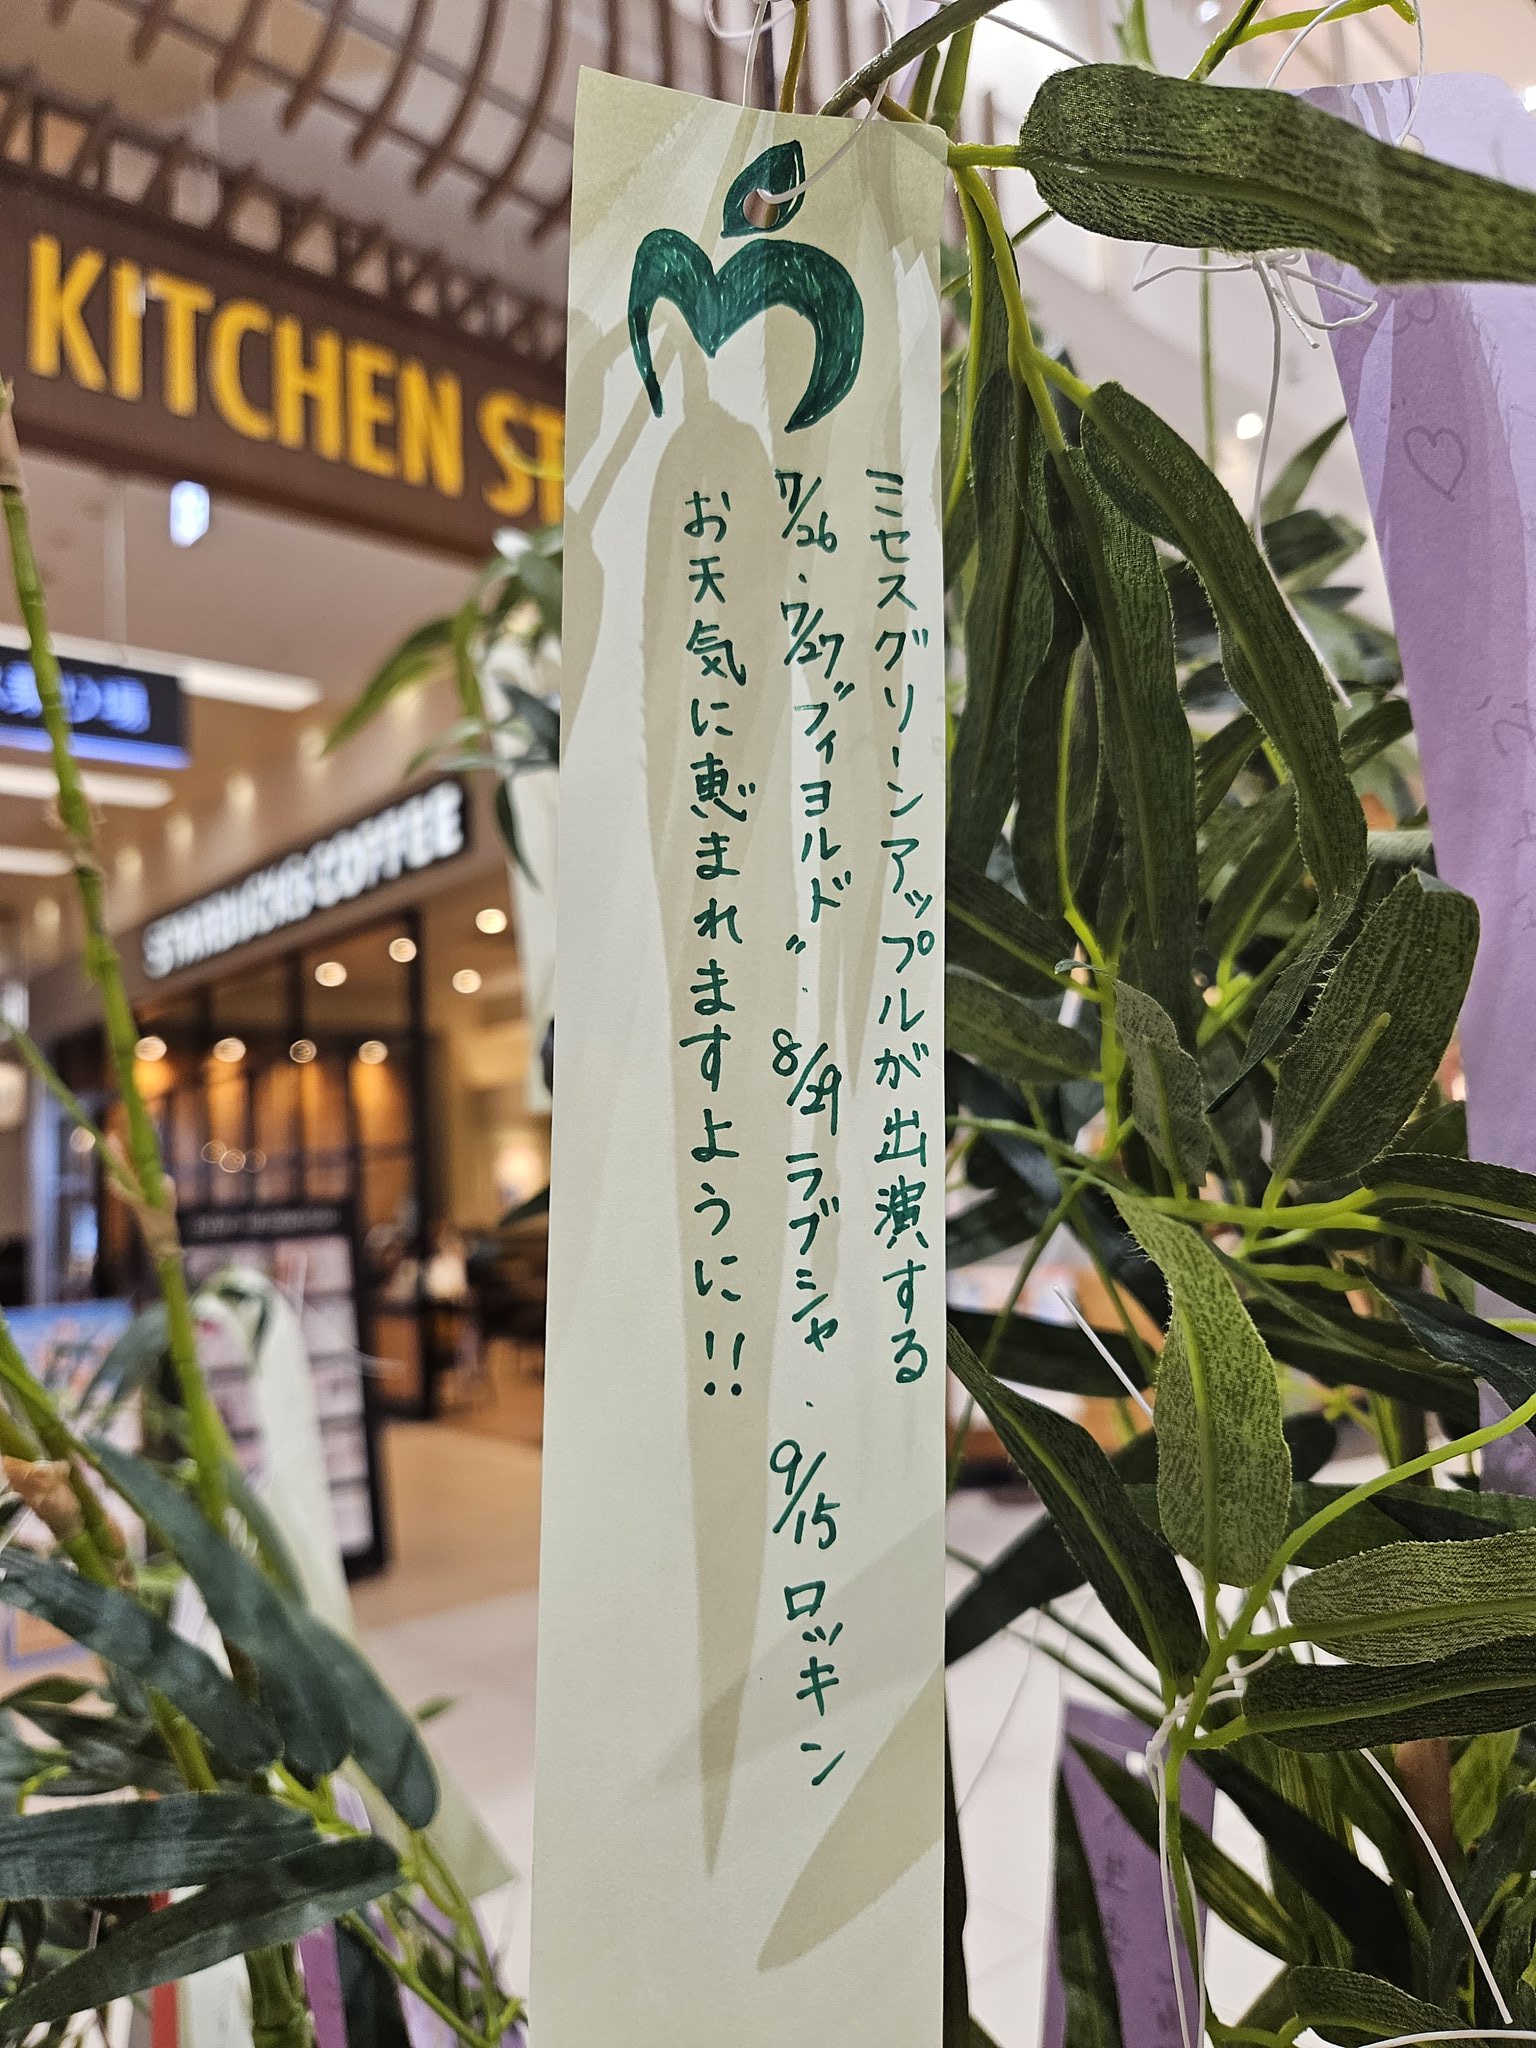 ミセスグリーンアップルが出演する
7/26・7/27〝フィヨルド〟・8/29ラブシャ・9/15ロッキン
お天気に恵まれますように!!
KITCHEN ST
STARBUCKS COFFEE